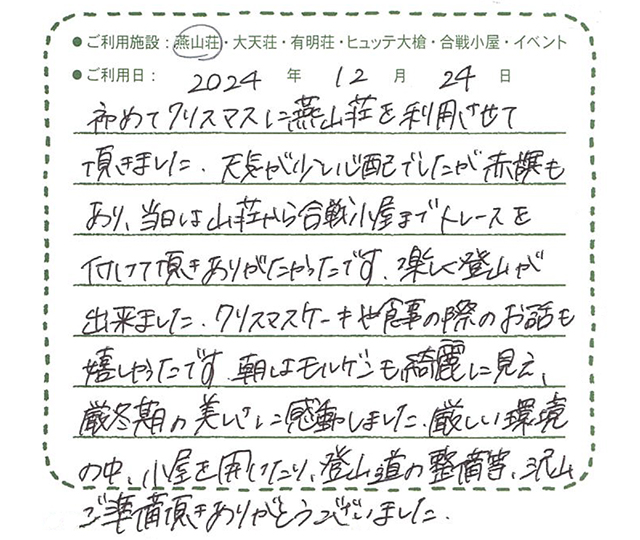 ●ご利用施設：燕山荘・大天荘・有明荘・ヒュッテ大槍・合戦小屋・イベント
●ご利用日： 2024 年 12 月 24 日
初めてクリスマスに燕山荘を利用させて
頂きました。天気が少し心配でしたが赤旗も
あり、当日は山荘から合戦小屋までトレースを
付けて頂きありがたかったです。楽しく登山が
出来ました。クリスマスケーキや食事の際のお話も
嬉しかったです。朝はモルゲンも綺麗に見え、
厳冬期の美しさに感動しました。厳しい環境
の中、小屋を開けたり、登山道の整備等、沢山
ご準備頂きありがとうございました。